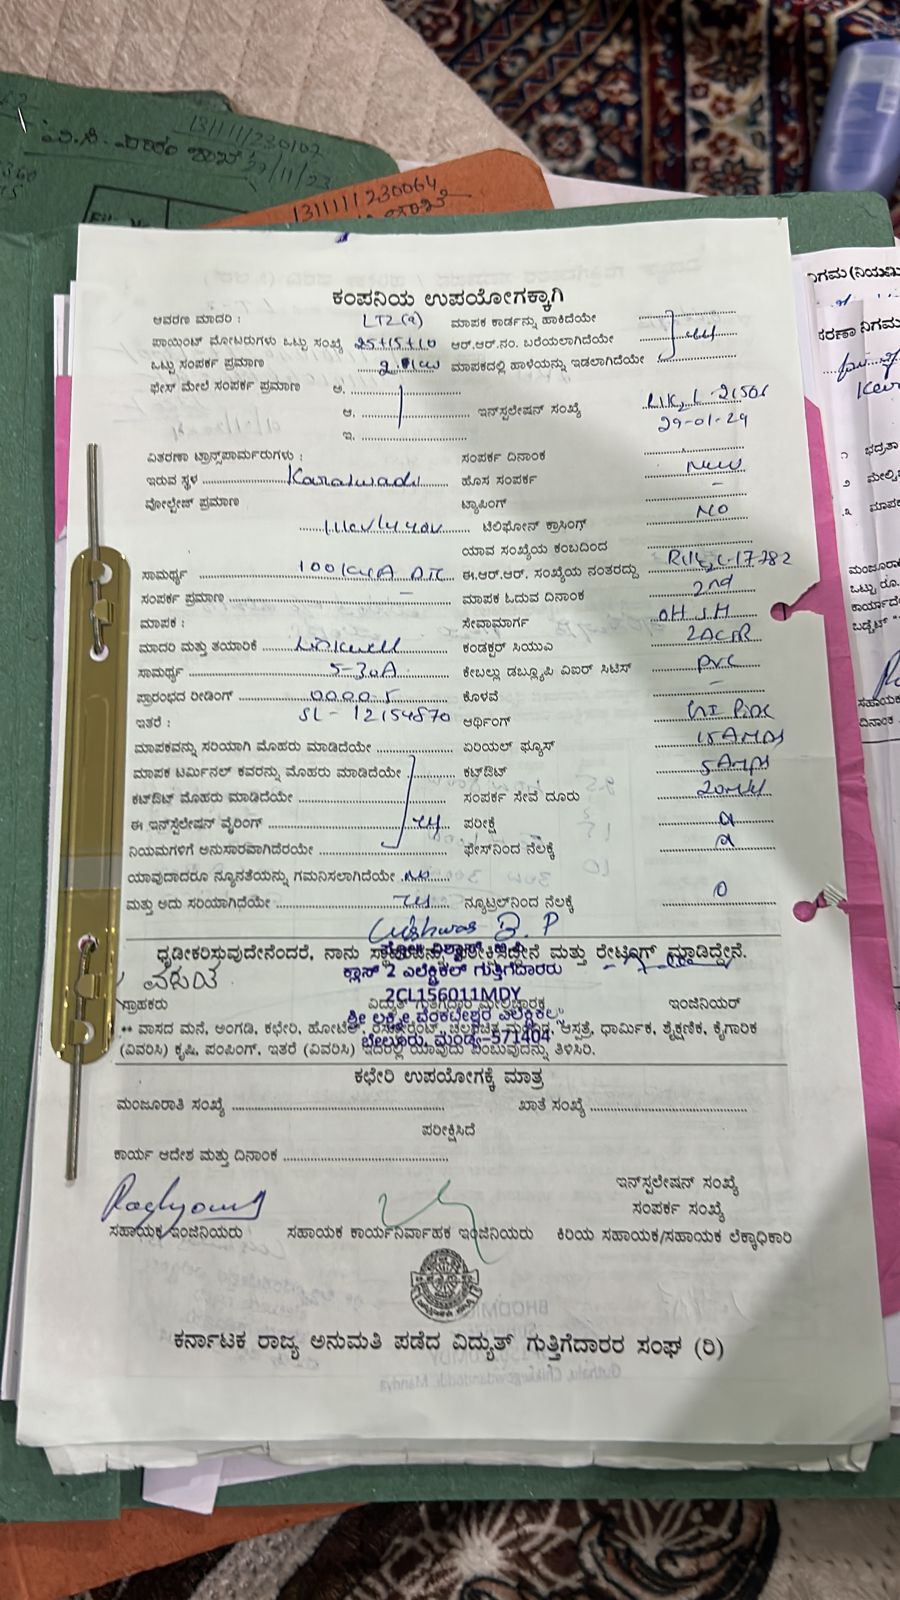 131111/230102
27/11/23
1311111230064
ಕಂಪನಿಯ ಉಪಯೋಗಕ್ಕಾಗಿ
ಆವರಣ ಮಾದರಿ : LT2(a) ಮಾಪಕ ಕಾರ್ಡನ್ನು ಹಾಕಿದೆಯೇ
ಪಾಯಿಂಟ್ ಮೋಟರುಗಳು ಒಟ್ಟು ಸಂಖ್ಯೆ 25+15+10 ಆರ್.ಆರ್.ನಂ. ಬರೆಯಲಾಗಿದೆಯೇ
ಒಟ್ಟು ಸಂಪರ್ಕ ಪ್ರಮಾಣ ಮಾಪಕದಲ್ಲಿ ಹಾಳೆಯನ್ನು ಇಡಲಾಗಿದೆಯೇ
ಫೇಸ್ ಮೇಲೆ ಸಂಪರ್ಕ ಪ್ರಮಾಣ ಅ.
ಆ. ಇನ್‌ಸ್ಪಲೇಷನ್ ಸಂಖ್ಯೆ
ಇ.
ವಿತರಣಾ ಟ್ರಾನ್ಸ್‌ಪಾರ್ಮರುಗಳು : ಸಂಪರ್ಕ ದಿನಾಂಕ
ಇರುವ ಸ್ಥಳ Karalwadi ಹೊಸ ಸಂಪರ್ಕ New
ವೋಲ್ಟೇಜ್ ಪ್ರಮಾಣ ಟ್ಯಾಪಿಂಗ್ -
11kv/440v ಟೆಲಿಫೋನ್ ಕ್ರಾಸಿಂಗ್ NO
ಯಾವ ಸಂಖ್ಯೆಯ ಕಂಬದಿಂದ
ಸಾಮರ್ಥ್ಯ 100KVA DTC ಈ.ಆರ್.ಆರ್. ಸಂಖ್ಯೆಯ ನಂತರದ್ದು
ಸಂಪರ್ಕ ಪ್ರಮಾಣ - ಮಾಪಕ ಓದುವ ದಿನಾಂಕ 2nd
ಮಾಪಕ : ಸೇವಾಮಾರ್ಗ OH SH
ಮಾದರಿ ಮತ್ತು ತಯಾರಿಕೆ Linkwell ಕಂಡಕ್ಟರ್ ಸಿಯುವಿ 2ACSR
ಸಾಮರ್ಥ್ಯ 5-30A ಕೇಬಲ್ಲು ಡಬ್ಲ್ಯೂಪಿ ವಿಐರ್ ಸಿಟಿಸ್ PVC
ಪ್ರಾರಂಭದ ರೀಡಿಂಗ್ 0000.5 ಕೊಳವೆ -
ಇತರೆ : SL-12154570 ಅರ್ಥಿಂಗ್ GI Pipe
ಮಾಪಕವನ್ನು ಸರಿಯಾಗಿ ಮೊಹರು ಮಾಡಿದೆಯೇ ಏರಿಯಲ್ ಫ್ಯೂಸ್ 15AMPS
ಮಾಪಕ ಟರ್ಮಿನಲ್ ಕವರನ್ನು ಮೊಹರು ಮಾಡಿದೆಯೇ ಕಟ್‌ಔಟ್ 5Amps
ಕಟ್‌ಔಟ್ ಮೊಹರು ಮಾಡಿದೆಯೇ ಸಂಪರ್ಕ ಸೇವೆ ದೂರು
ಈ ಇನ್‌ಸ್ಪಲೇಷನ್ ವೈರಿಂಗ್ ಪರೀಕ್ಷೆ
ನಿಯಮಗಳಿಗೆ ಅನುಸಾರವಾಗಿದೆರಯೇ ಫೇಸ್‌ನಿಂದ ನೆಲಕ್ಕೆ
ಯಾವುದಾದರೂ ನ್ಯೂನತೆಯನ್ನು ಗಮನಿಸಲಾಗಿದೆಯೇ No
ಮತ್ತು ಅದು ಸರಿಯಾಗಿದೆಯೇ ನ್ಯೂಟ್ರಲ್‌ನಿಂದ ನೆಲಕ್ಕೆ 0
B.P
ಧೃಡೀಕರಿಸುವುದೇನೆಂದರೆ, ನಾನು ಮತ್ತು ರೇಟಿಂಗ್ ಮಾಡಿದ್ದೇನೆ.
ಕ್ಲಾಸ್ 2 ಎಲೆಕ್ಟ್ರಿಕಲ್ ಗುತ್ತಿಗೆದಾರರು
2CL156011MDY
ಗ್ರಾಹಕರು ಇಂಜಿನಿಯರ್
ಶ್ರೀ ಲಕ್ಷ್ಮೀ ವೆಂಕಟೇಶ್ವರ ಎಲೆಕ್ಟ್ರಿಕಲ್ಸ್
** ವಾಸದ ಮನೆ, ಅಂಗಡಿ, ಕಛೇರಿ, ಹೋಟೆಲ್, ಆಸ್ಪತ್ರೆ, ಧಾರ್ಮಿಕ, ಶೈಕ್ಷಣಿಕ, ಕೈಗಾರಿಕ
ಬೇಲೂರು, ಮಂಡ್ಯ-571404
(ವಿವರಿಸಿ) ಕೃಷಿ, ಪಂಪಿಂಗ್, ಇತರೆ (ವಿವರಿಸಿ) ಇದರಲ್ಲಿ ಯಾವುದು ಎಂಬುವುದನ್ನು ತಿಳಿಸಿರಿ.
ಕಛೇರಿ ಉಪಯೋಗಕ್ಕೆ ಮಾತ್ರ
ಮಂಜೂರಾತಿ ಸಂಖ್ಯೆ ಖಾತೆ ಸಂಖ್ಯೆ
ಪರೀಕ್ಷಿಸಿದೆ
ಕಾರ್ಯ ಆದೇಶ ಮತ್ತು ದಿನಾಂಕ
ಇನ್‌ಸ್ಪಲೇಷನ್ ಸಂಖ್ಯೆ
ಸಂಪರ್ಕ ಸಂಖ್ಯೆ
ಸಹಾಯಕ ಇಂಜಿನಿಯರು ಸಹಾಯಕ ಕಾರ್ಯನಿರ್ವಾಹಕ ಇಂಜಿನಿಯರು ಕಿರಿಯ ಸಹಾಯಕ/ಸಹಾಯಕ ಲೆಕ್ಕಾಧಿಕಾರಿ
ಕರ್ನಾಟಕ ರಾಜ್ಯ ಅನುಮತಿ ಪಡೆದ ವಿದ್ಯುತ್ ಗುತ್ತಿಗೆದಾರರ ಸಂಘ (ರಿ)